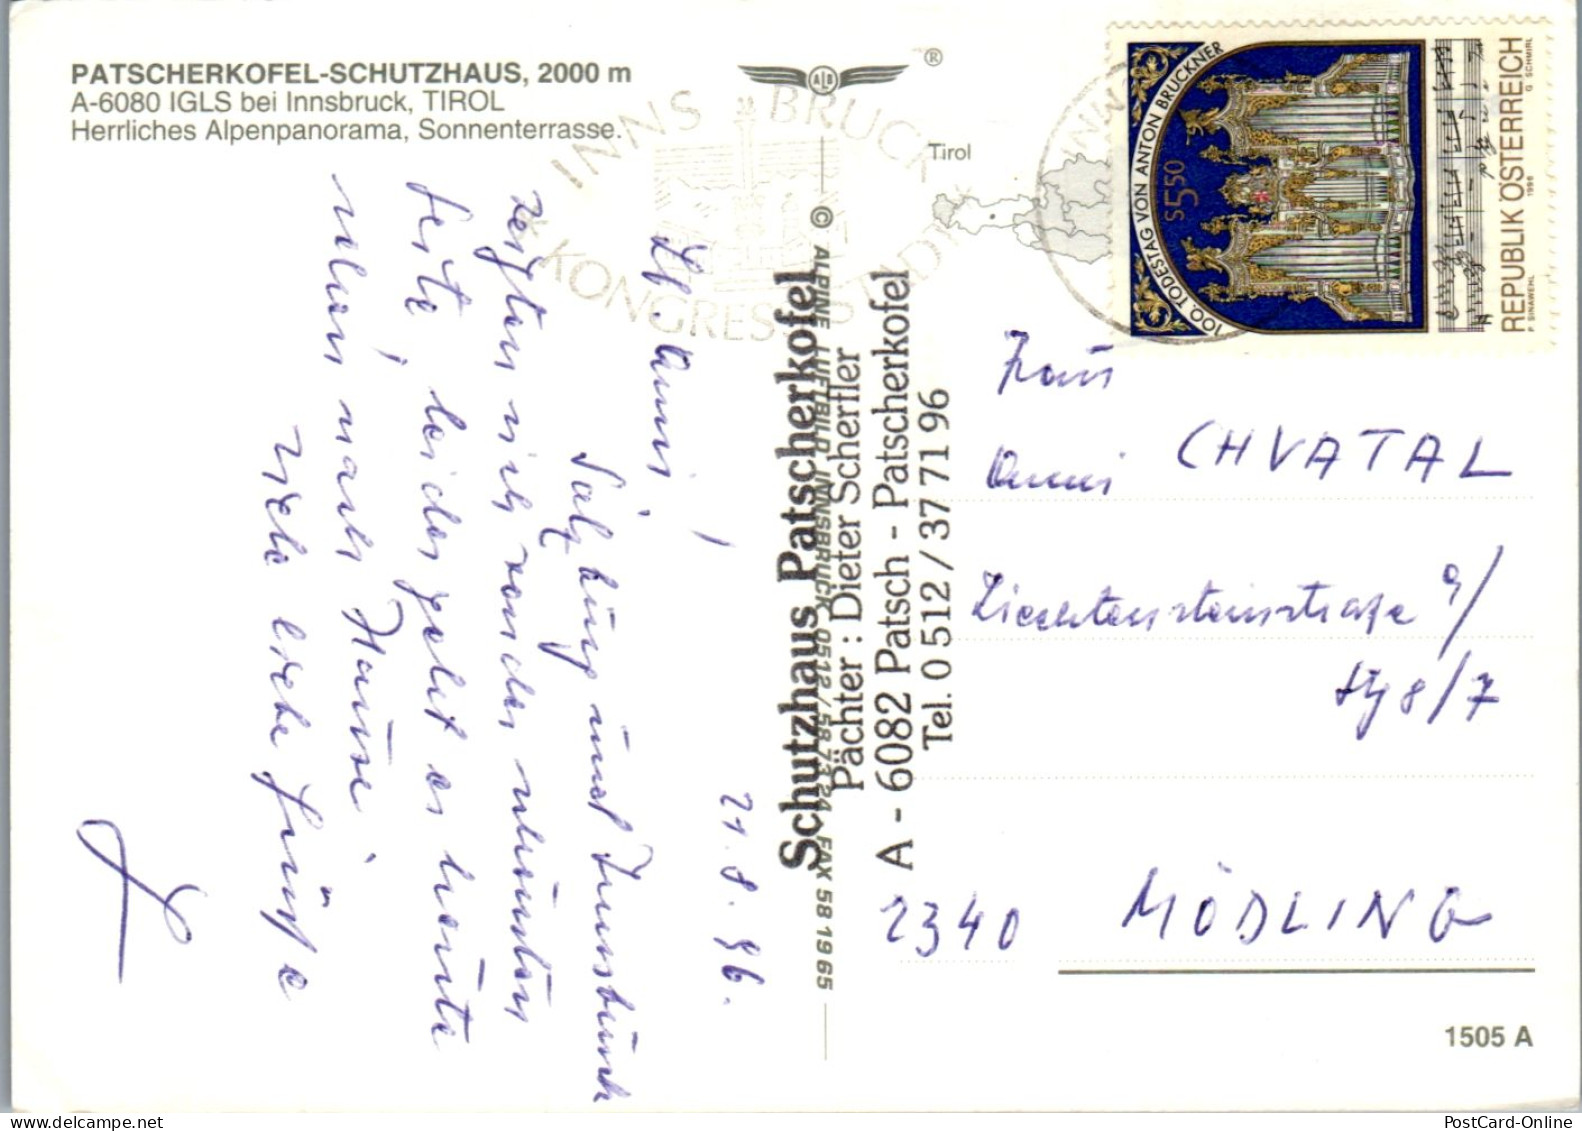 PATSCHERKOFEL-SCHUTZHAUS, 2000 m
A-6080 IGLS bei Innsbruck, TIROL
Herrliches Alpenpanorama, Sonnenterrasse.
ALB
®
Tirol
INNSBRUCK
KONGRESSTADT
100. TODESTAG VON ANTON BRUCKNER
S 5.50
REPUBLIK ÖSTERREICH
F. SINAWEHL 1996 G. SCHMIRL
21.8.96.
Lb. Anni!
Salzburg und Innsbruck
zeigten sich von der schönsten
Seite, leider geht es heute
schon nach Hause.
Viele liebe Grüße
© ALPINE LUFTBILD INNSBRUCK 0512/58 73 24, FAX 58 19 65
Schutzhaus Patscherkofel
Pächter : Dieter Schertler
A - 6082 Patsch - Patscherkofel
Tel. 0 512 / 37 71 96
Frau
Anni CHVATAL
Liechtensteinstraße 9/
Stg 8/7
2340 MÖDLING
1505 A
PostCard-Online